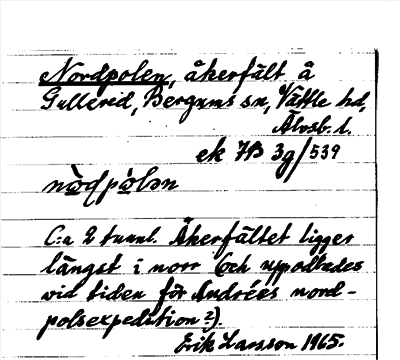 Nordpolen, åkerfält å
Gullered, Bergums sn, Vättle hd,
Älvsb. l.
ek 7B 3g/539
nòḍpòlən
C:a 2 tunnl. Åkerfältet ligger
längst i norr (och uppodlades
vid tiden för Andrées nord-
polsexpedition ?).
Erik Larsson 1965.